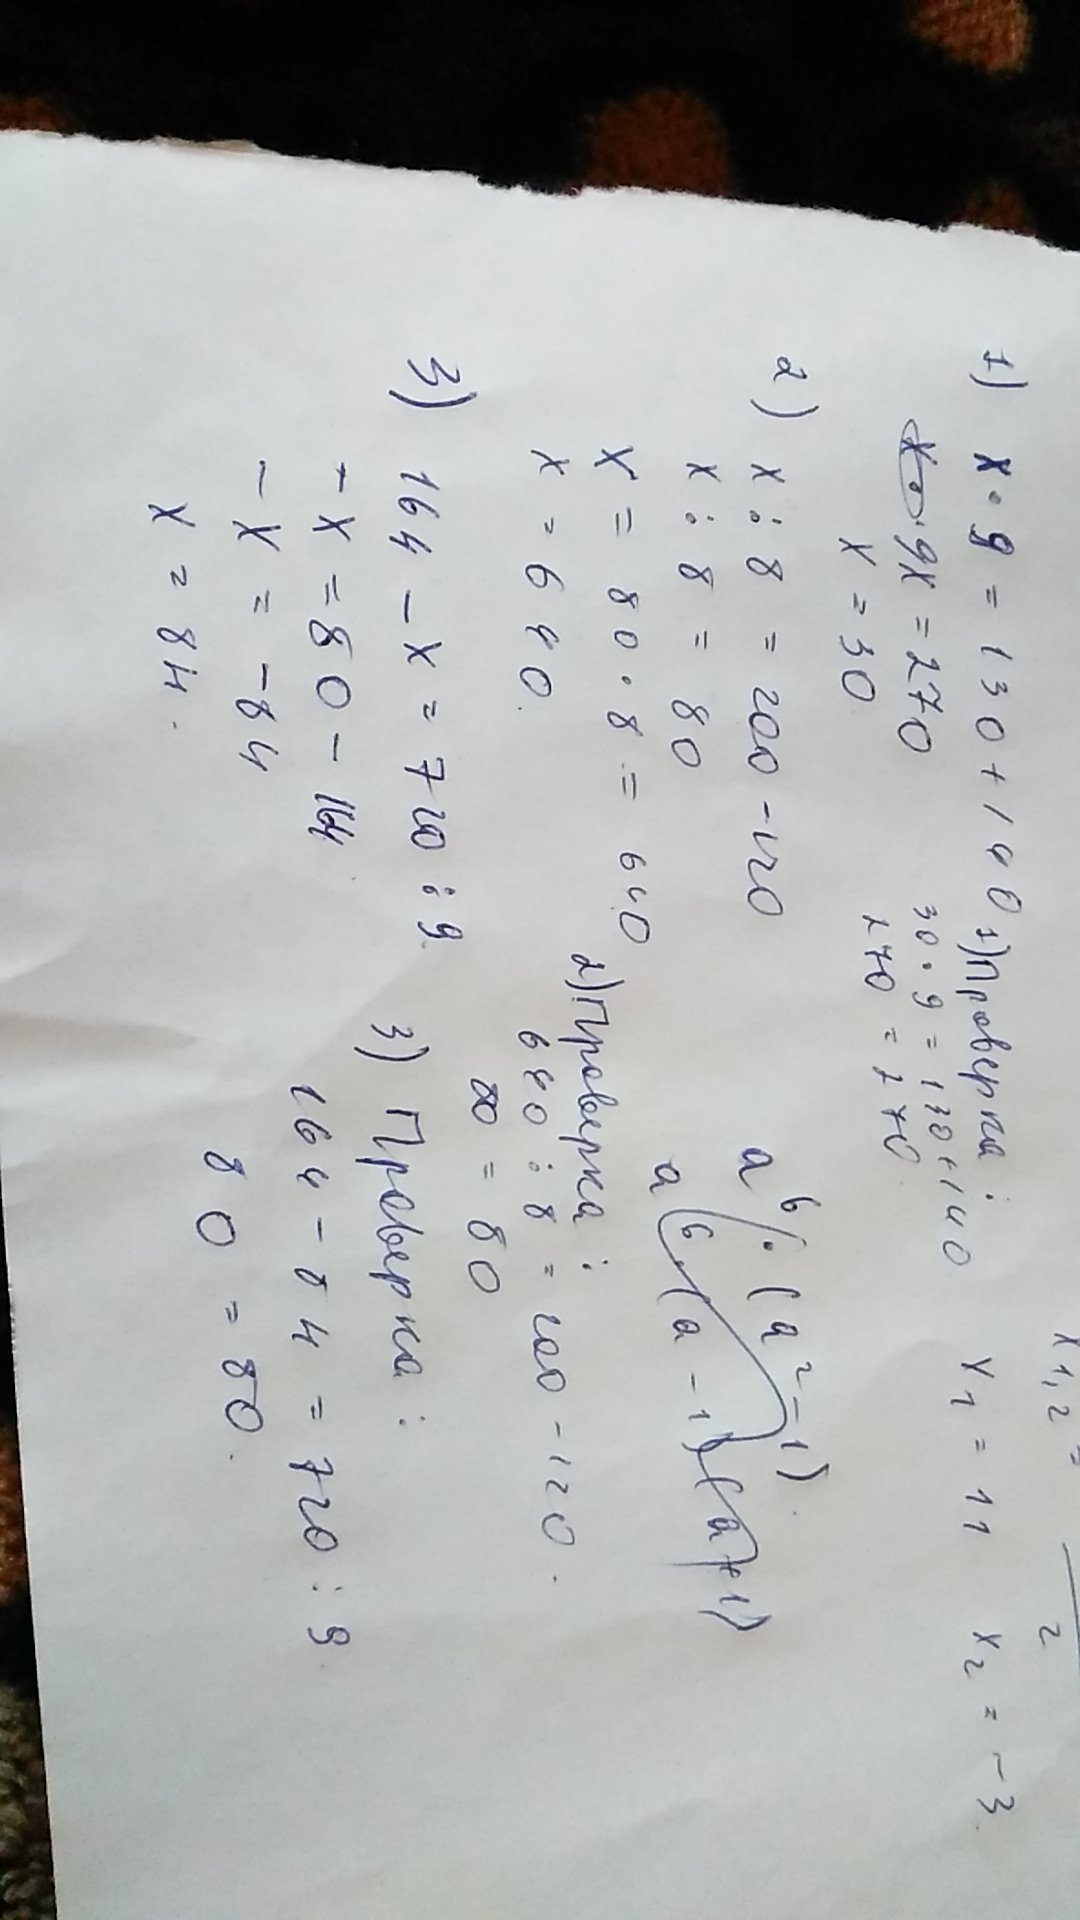 1) x · 9 = 130 + 140
9x = 270
x = 30
1) Проверка:
30 · 9 = 130 + 140
270 = 270
x1,2 =
2
x1 = 11 x2 = -3
2) x : 8 = 200 - 120
x : 8 = 80
x = 80 · 8 = 640
x = 640
a^6 : (a^2 - 1)
a (6 (a - 1) (a + 1)
2) Проверка:
640 : 8 = 200 - 120.
80 = 80
3) 164 - x = 720 : 9
- x = 80 - 164
- x = - 84
x = 84.
3) Проверка:
164 - 84 = 720 : 9
80 = 80.